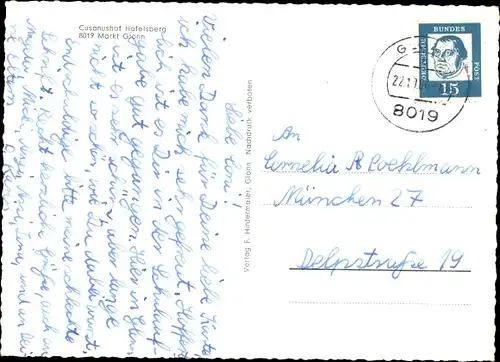 Cusanushof Hafelsberg
8019 Markt Glonn
Liebe Comi!
Vielen Dank für Deine liebe Karte
ich habe mich sehr gefreut. Hoffent-
lich ist es Dir in der Schulauf-
gabe gut gegangen. Hier in Glonn
ist es sehr schön, aber lange
nicht so schön, wie Du dabei warst
Entschuldige bitte meine schlechte
Schrift. Recht herzliche Grüße, auch an
und an Dei-
ne Eltern
Verlag F. Hintermaier, Glonn Nachdruck verboten
DEUTSCHE
BUNDES
POST
15
22.11.
8019
An
Cornelia Roeckelmann
München 27
Delpstraße 19